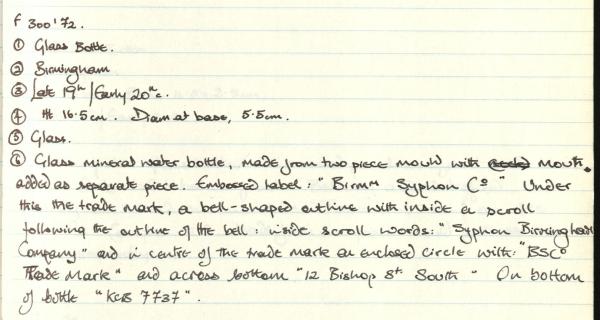 F 300'72.
① Glass Bottle.
② Birmingham
③ Late 19th / Early 20th c.
④ Ht 16.5cm. Diam at base, 5.5cm.
⑤ Glass.
⑥ Glass mineral water bottle, made from two piece mould with mouth
added as separate piece. Embossed label: "Birmm Syphon Co" Under
this the trade mark, a bell-shaped outline with inside a scroll
following the outline of the bell: inside scroll words: "Syphon Birmingham
Company" and in centre of the trade mark an enclosed circle with: "BSCo
Trade Mark" and across bottom "12 Bishop St South" On bottom
of bottle "KCB 7737".